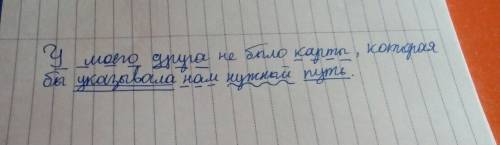 У моего друга не было карты, которая
бы указывала нам нужный путь.